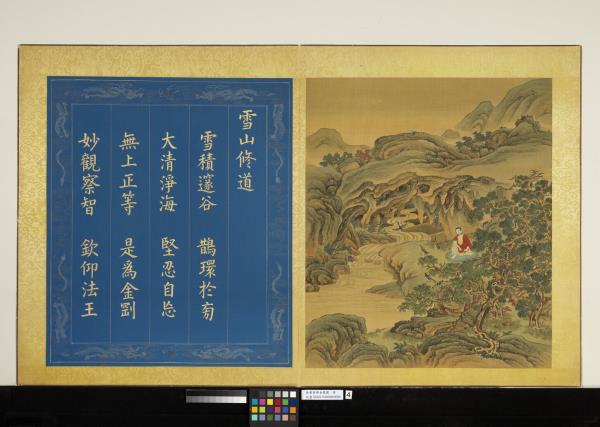 雪山修道
雪積邃谷 鵲環於
大清淨海 堅忍自忘
無上正等 是為金剛
妙觀察智 欽仰法王
4